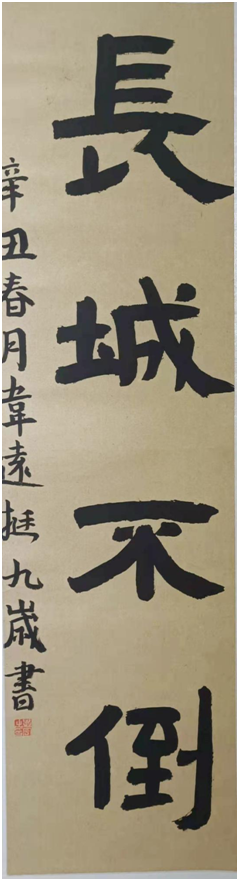 長城不倒
辛丑春月韋遠挺九歲書